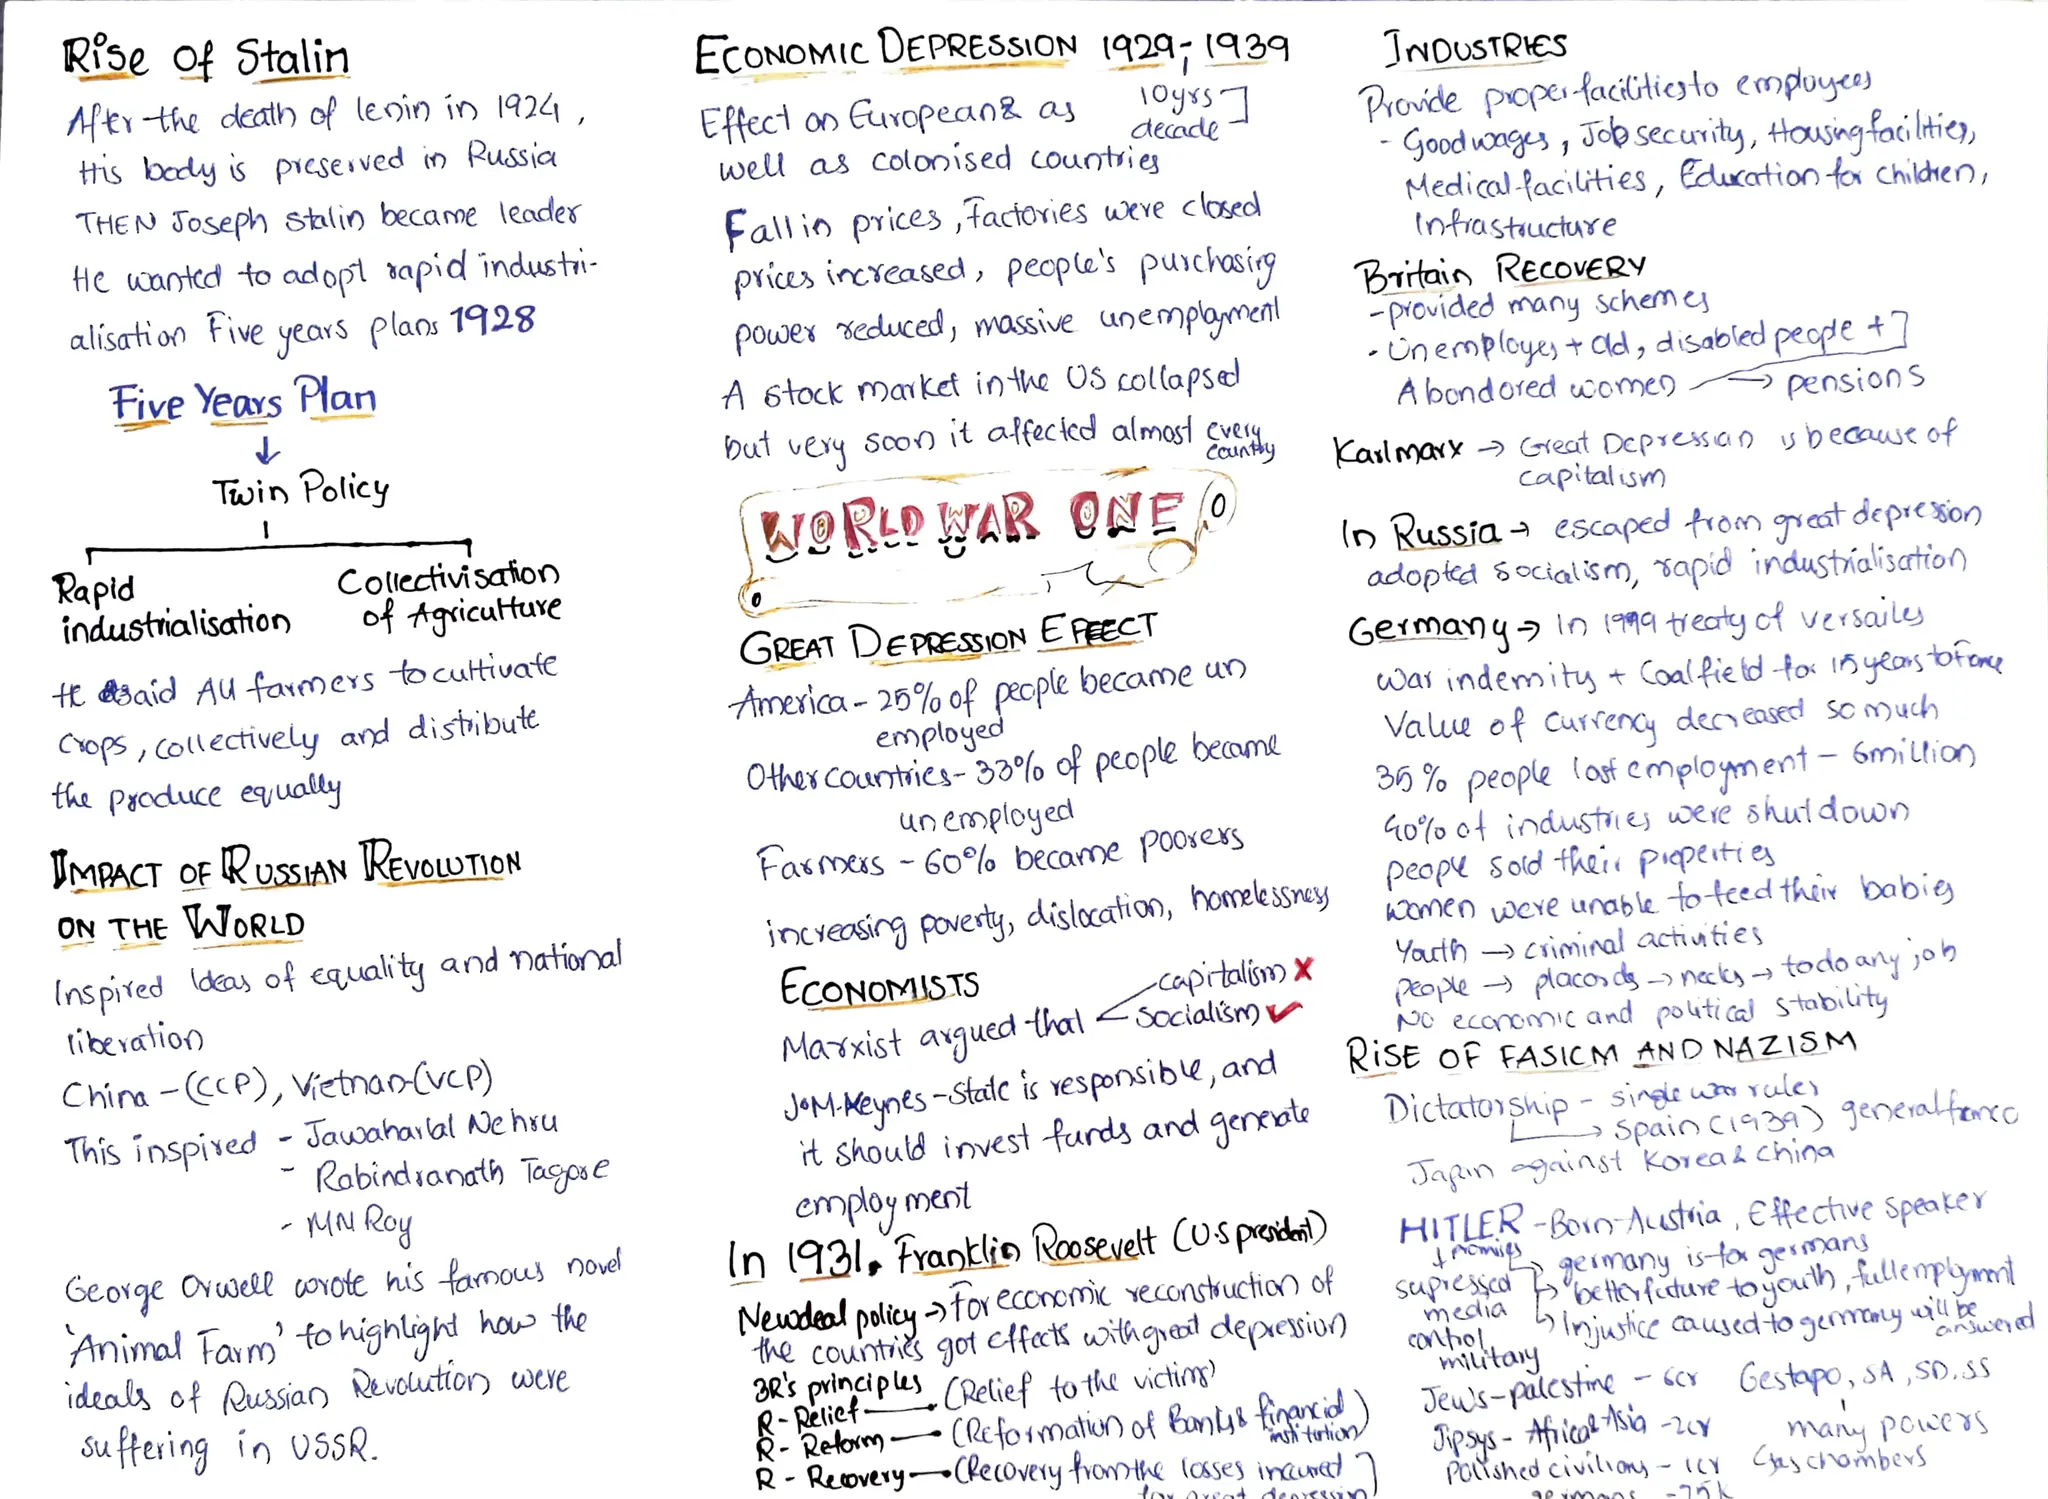 Rise of Stalin
After the death of lenin in 1924,
His body is preserved in Russia
THEN Joseph Stalin became leader
He wanted to adopt rapid industri-
alisation Five years plans 1928
Five Years Plan
↓
Twin Policy
Rapid industrialisation
Collectivisation of Agriculture
He said All farmers to cultivate
crops, collectively and distribute
the produce equally
IMPACT OF RUSSIAN REVOLUTION
ON THE WORLD
Inspired Ideas of equality and national
liberation
China - (CCP), Vietnan-(VCP)
This inspired - Jawaharlal Nehru
- Rabindranath Tagore
- MN Roy
George Orwell wrote his famous novel
'Animal Farm' to highlight how the
ideals of Russian Revolution were
suffering in USSR.
ECONOMIC DEPRESSION 1929-1939
10yrs
decade
Effect on European& as
well as colonised countries
Fall in prices, factories were closed
prices increased, people's purchasing
power reduced, massive unemployment
A stock market in the US collapsed
but very soon it affected almost every
country
WORLD WAR ONE
GREAT DEPRESSION EFFECT
America - 25% of people became un
employed
Other countries - 33% of people became
unemployed
Farmers - 60% became poorers
increasing poverty, dislocation, homelessness
ECONOMISTS
Marxist argued that < capitalism ✗
socialism ✓
J.M.Keynes - State is responsible, and
it should invest funds and generate
employment
In 1931. Franklin Roosevelt (U.S president)
Newdeal policy → For economic reconstruction of
the countries got effects with great depression
3R's principles
R - Relief — (Relief to the victims)
R - Reform — (Reformation of Banks & financial
institution)
R - Recovery — (Recovery from the losses incurred
for great depression)
INDUSTRIES
Provide proper facilities to employees
- Good wages, Job security, Housing facilities,
Medical facilities, Education for children,
Infrastructure
Britain RECOVERY
- provided many schemes
- Unemployes + old, disabled people +
Abondored women → pensions
Karlmarx → Great Depression is because of
capitalism
In Russia → escaped from great depression
adopted socialism, rapid industrialisation
Germany → In 1919 treaty of versailes
War indemnity + Coalfield for 15 years to France
Value of currency decreased so much
35% people lost employment - 6million
40% of industries were shutdown
people sold their properties
women were unable to feed their babies
Youth → criminal activities
people → placords → necks → to do any job
No economic and political stability
RISE OF FASICM AND NAZISM
Dictatorship - single war ruler
→ Spain (1939) general franco
Japan against Korea & China
HITLER - Born-Austria, Effective speaker
↓ promises → germany is for germans
supressed → better future to youth, full employment
media → Injustice caused to germany will be
answered
control
military
Jews - palestine - 6cr
Gestapo, SA, SD, SS
Jipsys - Africa & Asia - 2cr
many powers
polished civilions - 1cr
Gas chambers
germans - 75k